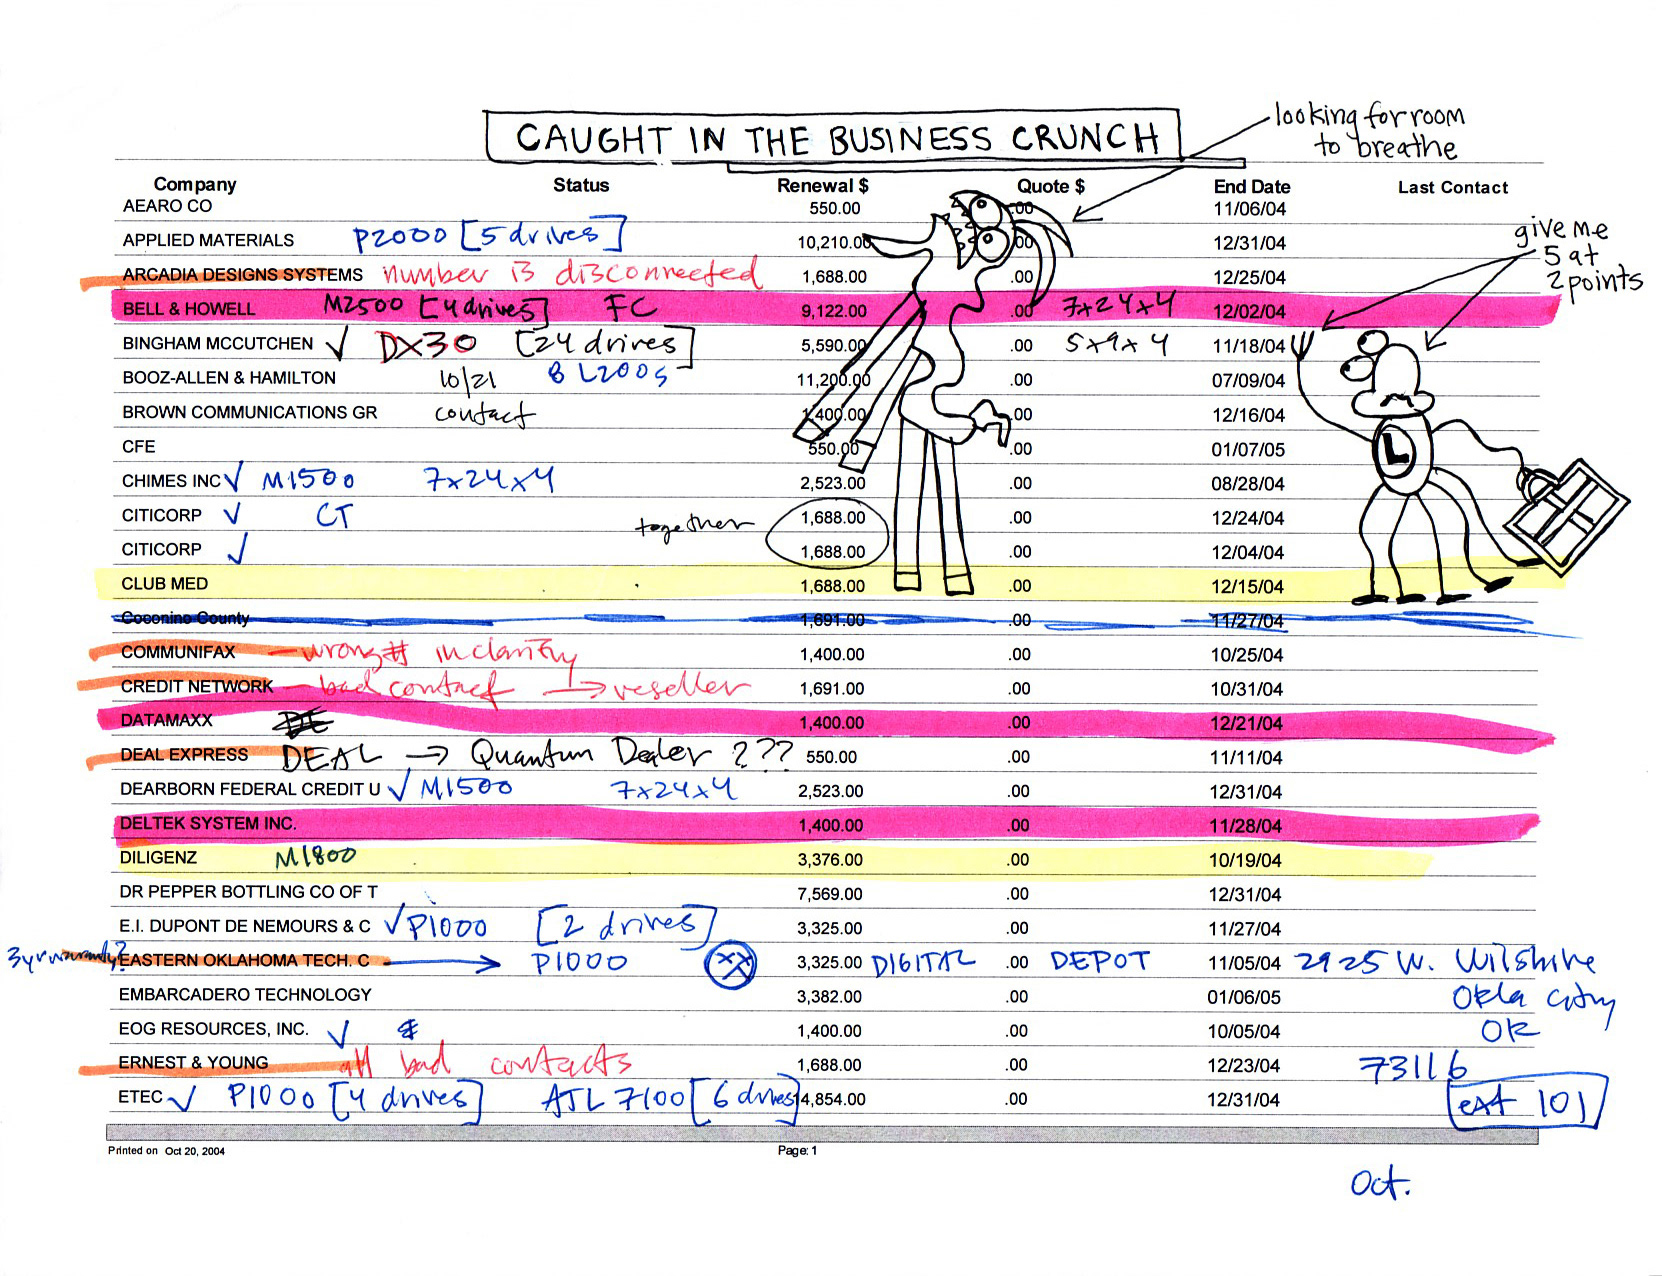 CAUGHT IN THE BUSINESS CRUNCH
looking for room
to breathe
Company Status Renewal $ Quote $ End Date Last Contact
AEARO CO 550.00 .00 11/06/04
APPLIED MATERIALS P2000 [5 drives] 10,210.00 .00 12/31/04
give me
5 at
2 points
ARCADIA DESIGNS SYSTEMS number is disconnected 1,688.00 .00 12/25/04
BELL & HOWELL M2500 [4 drives] FC 9,122.00 .00 7x24x4 12/02/04
BINGHAM MCCUTCHEN ✓ DX30 [24 drives] 5,590.00 .00 5x9x4 11/18/04
BOOZ-ALLEN & HAMILTON 10/21 8 L200s 11,200.00 .00 07/09/04
BROWN COMMUNICATIONS GR contact 1,400.00 .00 12/16/04
CFE 550.00 .00 01/07/05
CHIMES INC ✓ M1500 7x24x4 2,523.00 .00 08/28/04
CITICORP ✓ CT together 1,688.00 .00 12/24/04
CITICORP ✓ 1,688.00 .00 12/04/04
L
CLUB MED 1,688.00 .00 12/15/04
Coconino County 1,691.00 .00 11/27/04
COMMUNIFAX – wrong # in clarify 1,400.00 .00 10/25/04
CREDIT NETWORK – bad contact → reseller 1,691.00 .00 10/31/04
DATAMAXX 1,400.00 .00 12/21/04
DEAL EXPRESS DEAL → Quantum Dealer ??? 550.00 .00 11/11/04
DEARBORN FEDERAL CREDIT U ✓ M1500 7x24x4 2,523.00 .00 12/31/04
DELTEK SYSTEM INC. 1,400.00 .00 11/28/04
DILIGENZ M1800 3,376.00 .00 10/19/04
DR PEPPER BOTTLING CO OF T 7,569.00 .00 12/31/04
E.I. DUPONT DE NEMOURS & C ✓ P1000 [2 drives] 3,325.00 .00 11/27/04
3yr warranty? EASTERN OKLAHOMA TECH. C → P1000 XX 3,325.00 DIGITAL .00 DEPOT 11/05/04 2925 W. Wilshire
EMBARCADERO TECHNOLOGY 3,382.00 .00 01/06/05 Okla City
EOG RESOURCES, INC. ✓ 1,400.00 .00 10/05/04 OK
ERNEST & YOUNG all bad contacts 1,688.00 .00 12/23/04 73116
ETEC ✓ P1000 [4 drives] ATL 7100 [6 drives] 4,854.00 .00 12/31/04 ext 101
Printed on Oct 20, 2004 Page: 1
Oct.